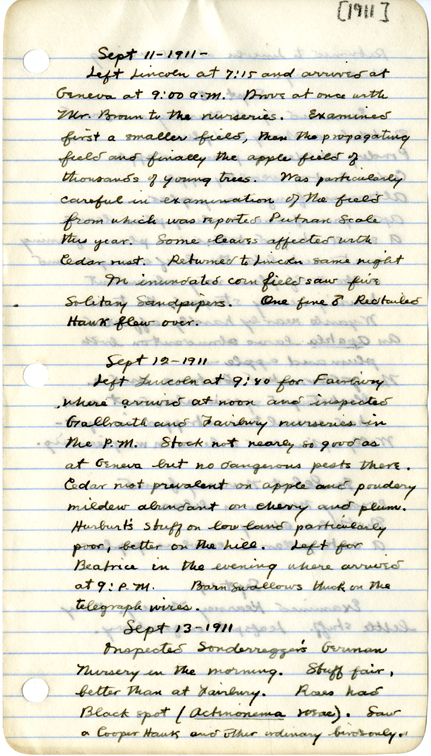 [1911]
Sept 11-1911-
Left Lincoln at 7:15 and arrived at
Geneva at 9:00 a.m. Drove at once with
Mr. Brown to the nurseries. Examined
first a smaller field, then the propagating
field and finally the apple field of
thousands of young trees. Was particularly
careful in examination of the field
from which was reported Putnan Scale
this year. Some leaves affected with
Cedar rust. Returned to Lincoln same night
In inundated corn field saw five
Solitary Sandpipers. One fine ♂ Redtailed
Hawk flew over.
Sept 12-1911
Left Lincoln at 9:40 for Fairbury
where arrived at noon and inspected
Galbraith and Fairbury nurseries in
the P.M. Stock not nearly so good as
at Geneva but no dangerous pests there.
Cedar rust prevalent on apple and powdery
mildew abundant on cherry and plum.
Hurburt's stuff on low land particularly
poor, better on the hill. Left for
Beatrice in the evening where arrived
at 9: P.M. Barn Swallows thick on the
telegraph wires.
Sept 13-1911
Inspected Sonderregger's German
Nursery in the morning. Stuff fair,
better than at Fairbury. Roses had
Black spot (Actinonema rosae). Saw
a Cooper Hawk and other ordinary birds only.